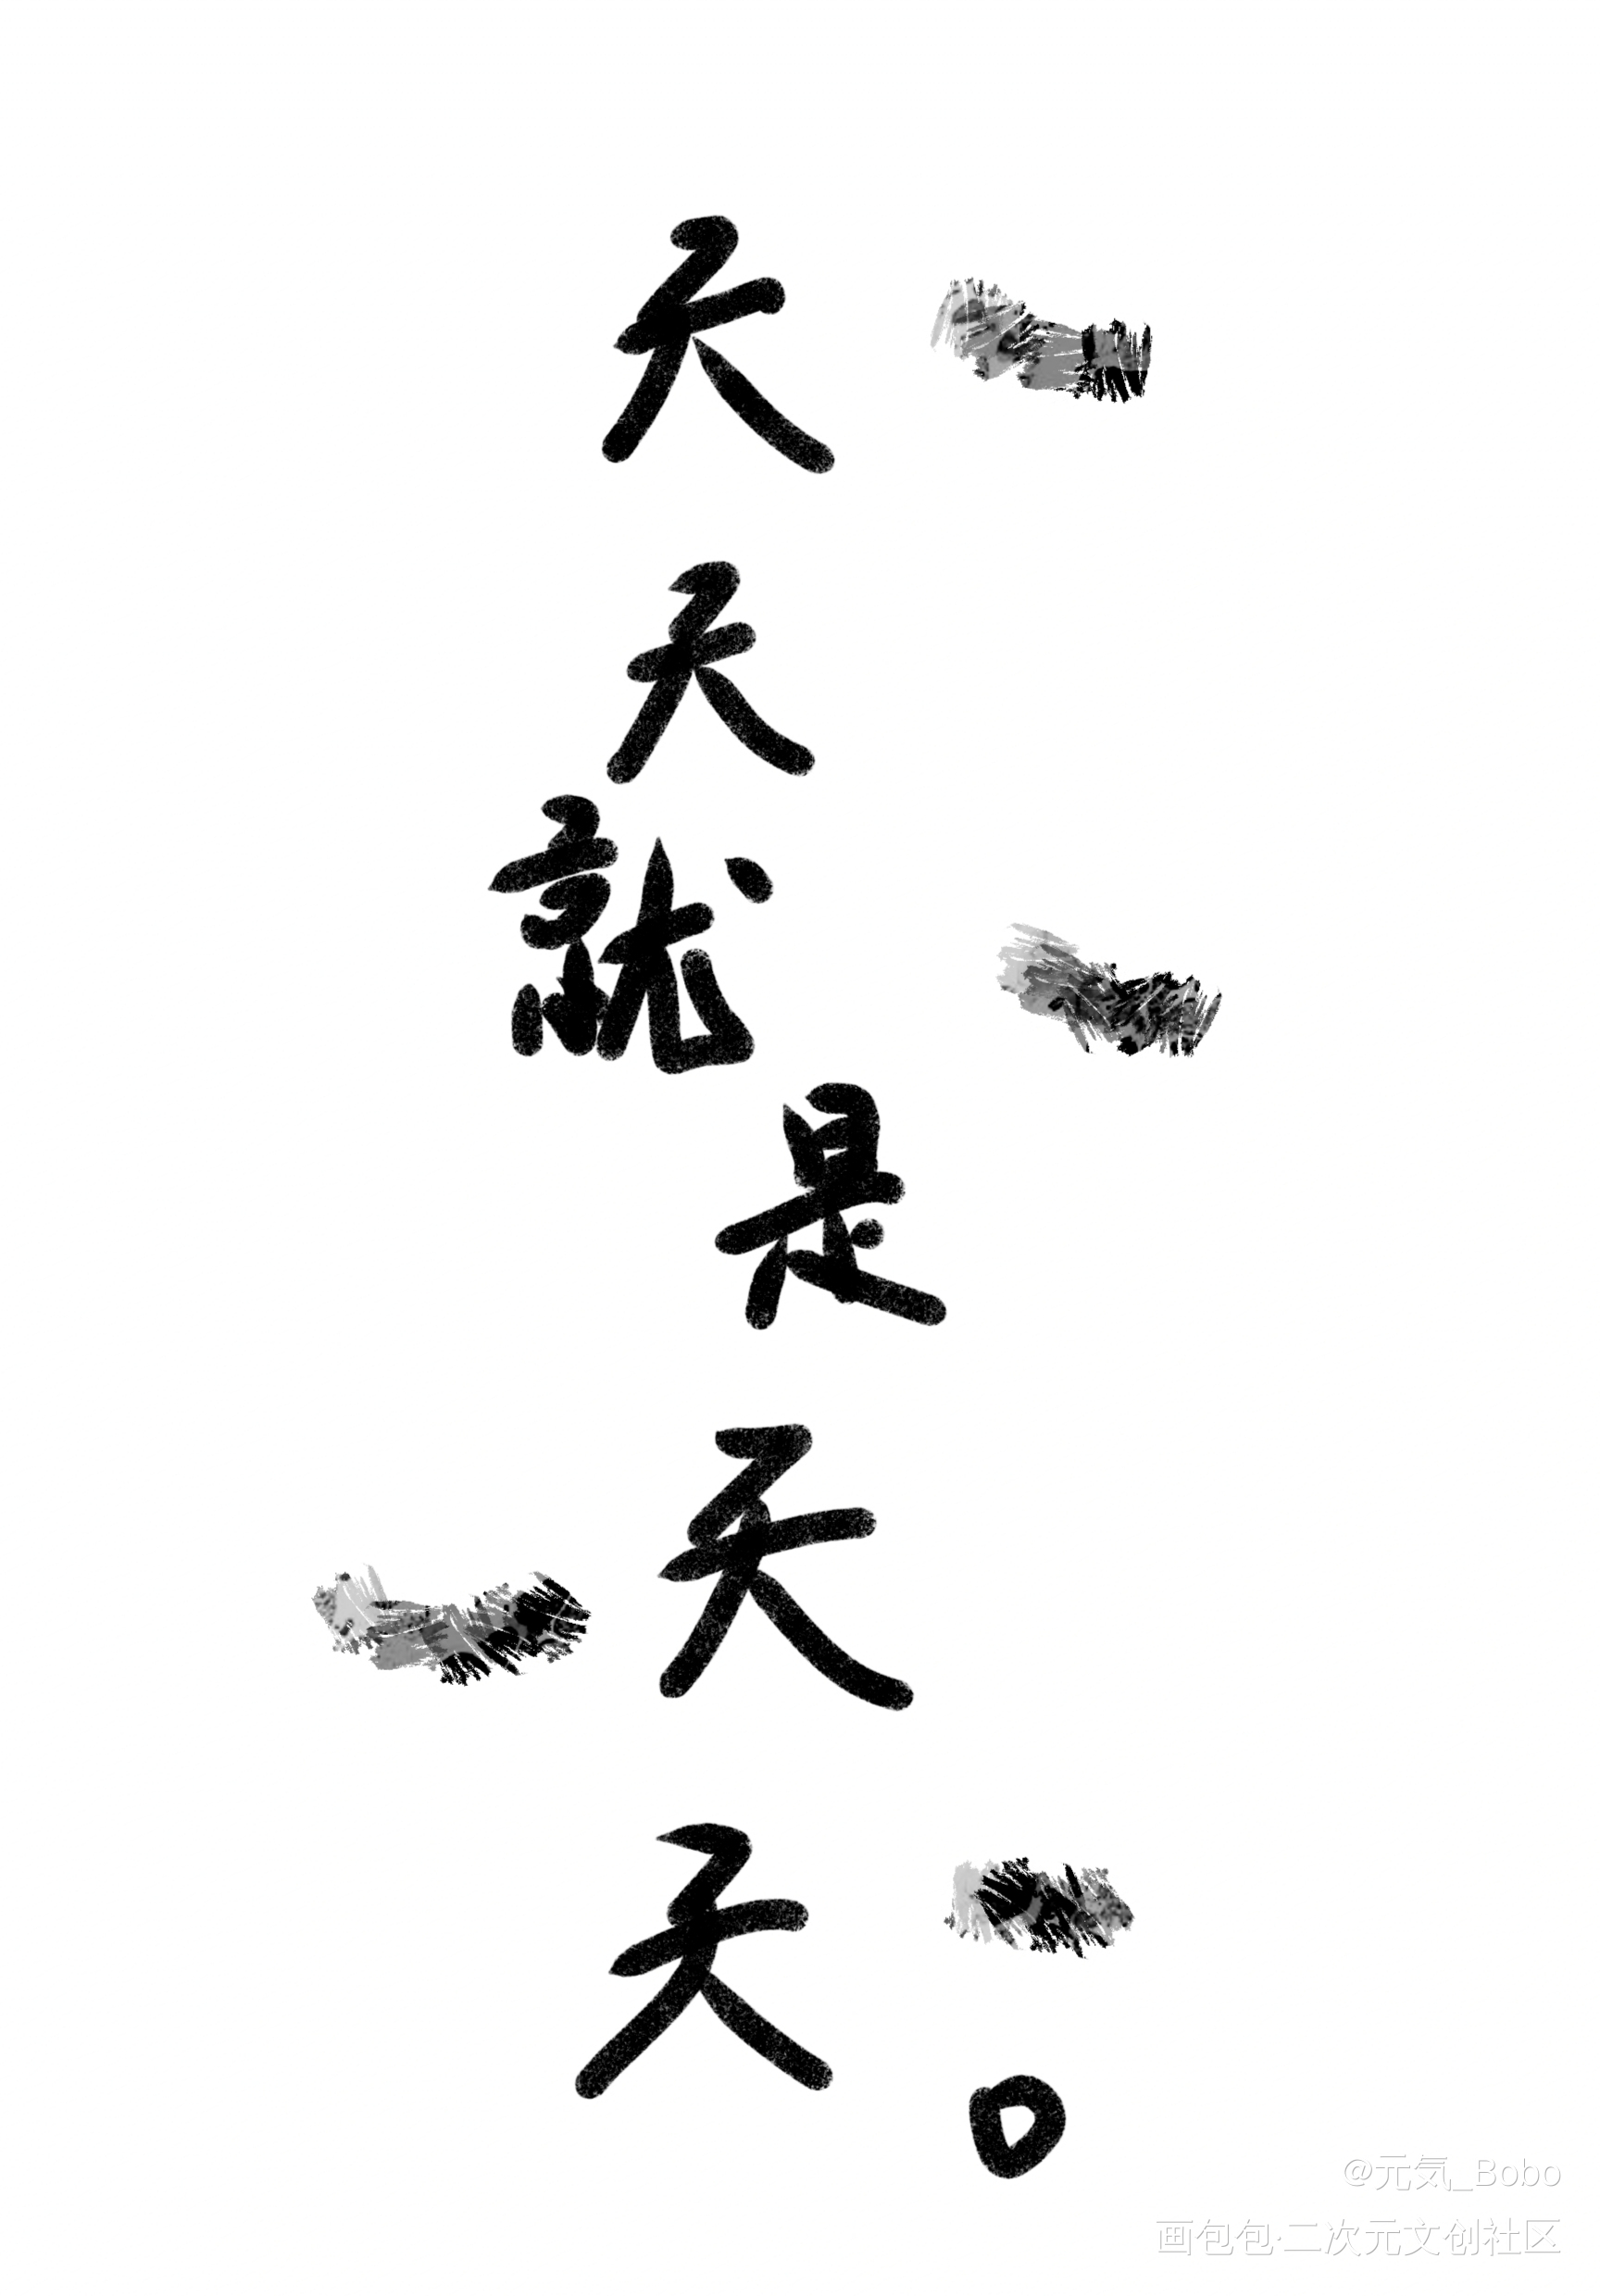 天天就是天天。
@元気_Bobo
画包包·二次元文创社区